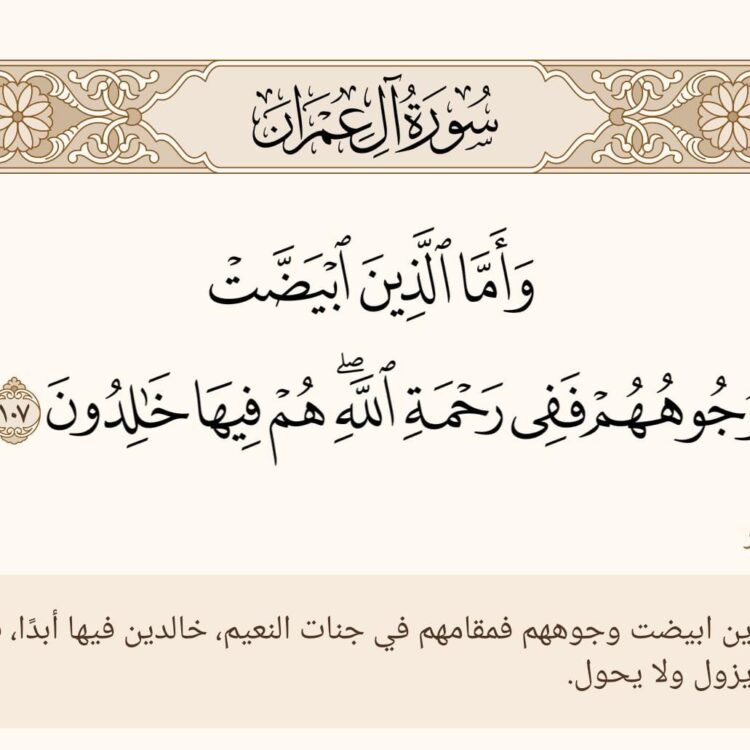 سُورَةُ آلِ عِمْرَانَ
وَأَمَّا ٱلَّذِينَ ٱبْيَضَّتْ
وُجُوهُهُمْ فَفِى رَحْمَةِ ٱللَّهِ ۖ هُمْ فِيهَا خَٰلِدُونَ ١٠٧
ابيضت وجوههم فمقامهم في جنات النعيم، خالدين فيها أبدًا،
يزول ولا يحول.